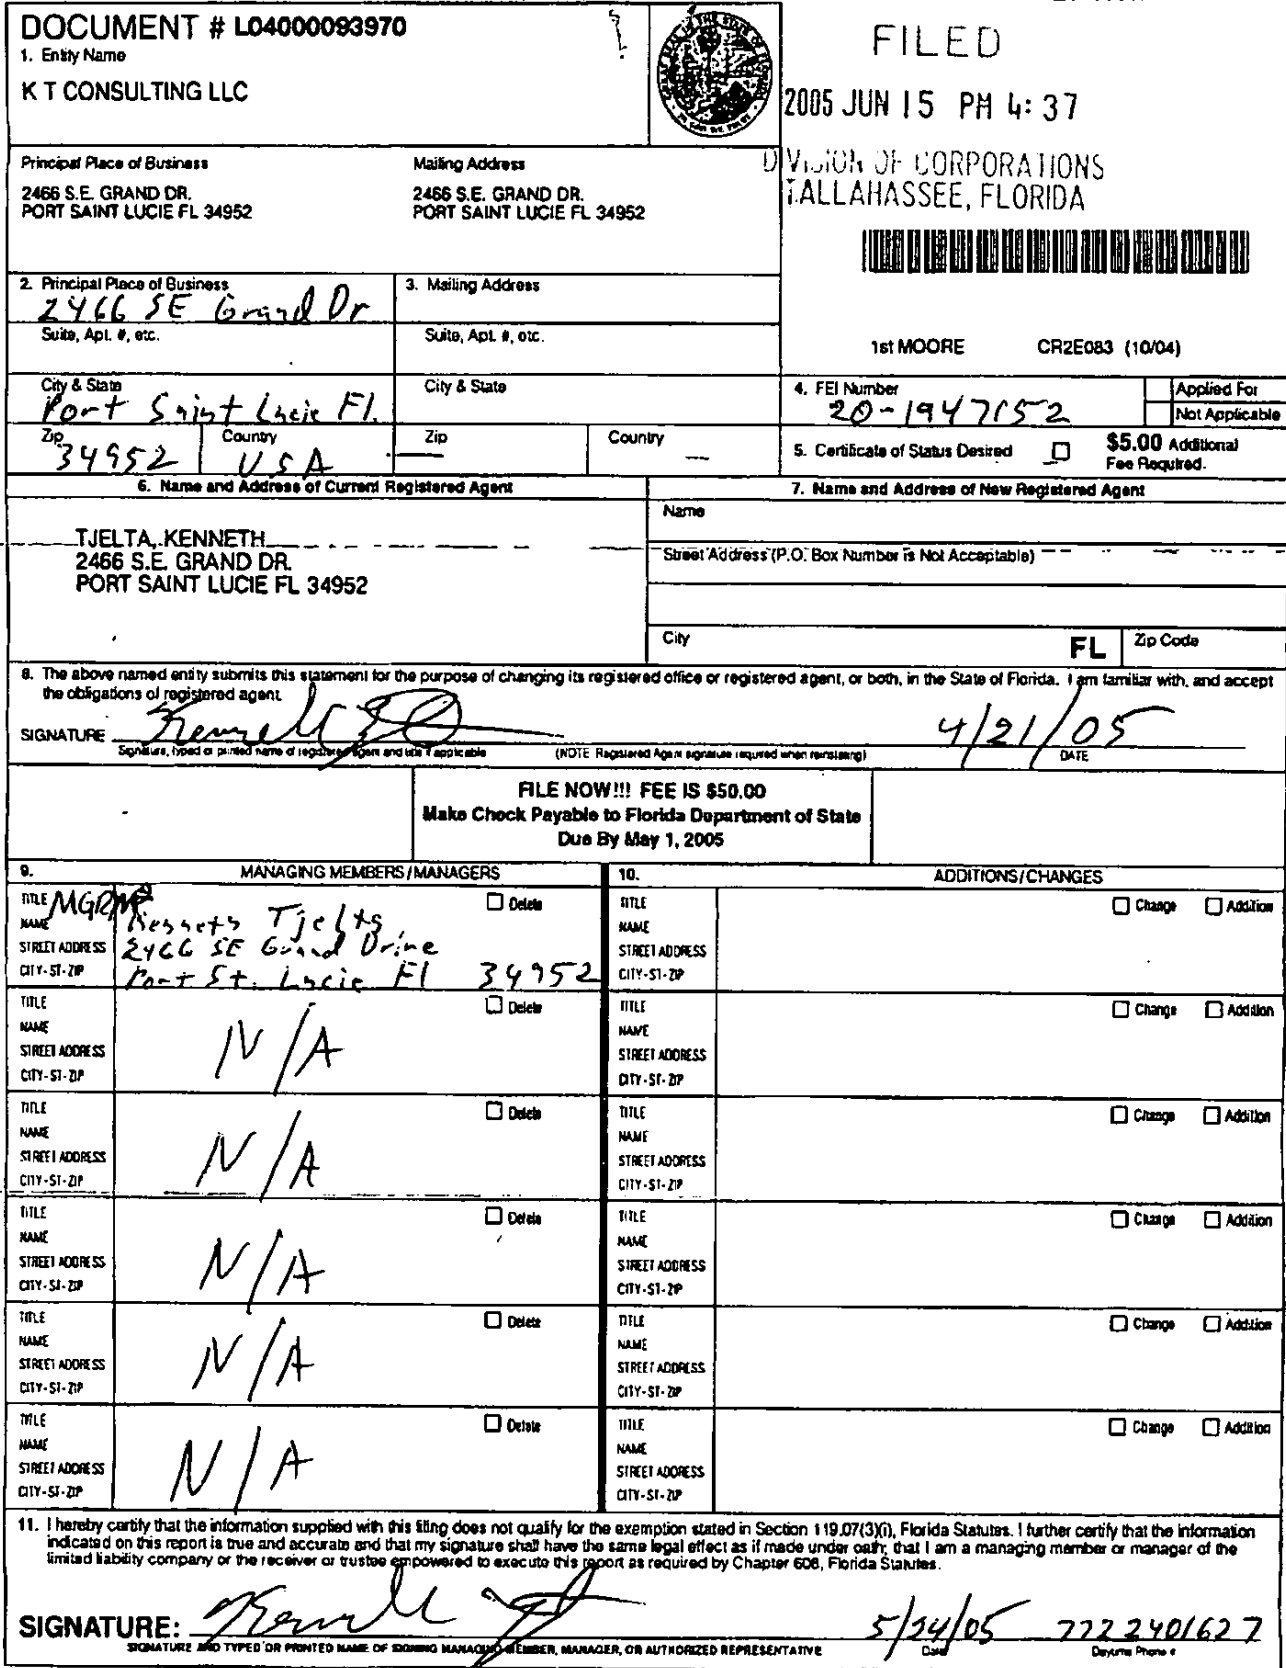 DOCUMENT # L04000093970
1. Entity Name
K T CONSULTING LLC
FILED
2005 JUN 15 PM 4:37
DIVISION OF CORPORATIONS
TALLAHASSEE, FLORIDA
Principal Place of Business
2466 S.E. GRAND DR.
PORT SAINT LUCIE FL 34952
Mailing Address
2466 S.E. GRAND DR.
PORT SAINT LUCIE FL 34952
2. Principal Place of Business
2466 SE Grand Dr
3. Mailing Address
Suite, Apt. #, etc.
Suite, Apt. #, etc.
1st MOORE CR2E083 (10/04)
City & State
Port Saint Lucie Fl.
City & State
4. FEI Number
20-1947152
Applied For
Not Applicable
Zip
34952
Country
USA
Zip
—
Country
—
5. Certificate of Status Desired
$5.00 Additional
Fee Required.
6. Name and Address of Current Registered Agent
TJELTA, KENNETH
2466 S.E. GRAND DR.
PORT SAINT LUCIE FL 34952
7. Name and Address of New Registered Agent
Name
Street Address (P.O. Box Number is Not Acceptable)
City
FL
Zip Code
8. The above named entity submits this statement for the purpose of changing its registered office or registered agent, or both, in the State of Florida. I am familiar with, and accept
the obligations of registered agent.
SIGNATURE
4/21/05
Signature, typed or printed name of registered agent and title if applicable
(NOTE Registered Agent signature required when reinstating)
DATE
FILE NOW!!! FEE IS $50.00
Make Check Payable to Florida Department of State
Due By May 1, 2005
9. MANAGING MEMBERS/MANAGERS
10. ADDITIONS/CHANGES
TITLE MGRM
Delete
NAME Kenneth Tjelta
STREET ADDRESS 2466 SE Grand Drive
CITY-ST-ZIP Port St. Lucie Fl 34952
TITLE
Change
Addition
NAME
STREET ADDRESS
CITY-ST-ZIP
TITLE
Delete
NAME
STREET ADDRESS
CITY-ST-ZIP
N/A
TITLE
Change
Addition
NAME
STREET ADDRESS
CITY-ST-ZIP
TITLE
Delete
NAME
STREET ADDRESS
CITY-ST-ZIP
N/A
TITLE
Change
Addition
NAME
STREET ADDRESS
CITY-ST-ZIP
TITLE
Delete
NAME
STREET ADDRESS
CITY-ST-ZIP
N/A
TITLE
Change
Addition
NAME
STREET ADDRESS
CITY-ST-ZIP
TITLE
Delete
NAME
STREET ADDRESS
CITY-ST-ZIP
N/A
TITLE
Change
Addition
NAME
STREET ADDRESS
CITY-ST-ZIP
TITLE
Delete
NAME
STREET ADDRESS
CITY-ST-ZIP
N/A
TITLE
Change
Addition
NAME
STREET ADDRESS
CITY-ST-ZIP
11. I hereby certify that the information supplied with this filing does not qualify for the exemption stated in Section 119.07(3)(i), Florida Statutes. I further certify that the information
indicated on this report is true and accurate and that my signature shall have the same legal effect as if made under oath; that I am a managing member or manager of the
limited liability company or the receiver or trustee empowered to execute this report as required by Chapter 608, Florida Statutes.
SIGNATURE:
5/24/05 7722401627
SIGNATURE AND TYPED OR PRINTED NAME OF SIGNING MANAGING MEMBER, MANAGER, OR AUTHORIZED REPRESENTATIVE
Date
Daytime Phone #